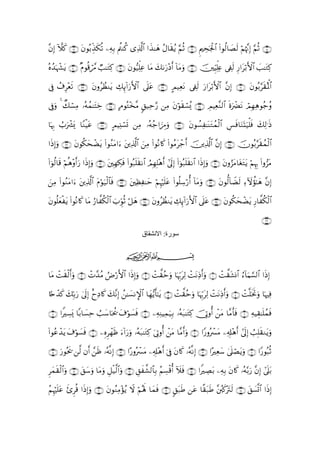 ثُمَّ إِنَّهُمْ لَصَالُوا۟ ٱلْجَحِيمِ ۝ ثُمَّ يُقَالُ هَٰذَا ٱلَّذِى كُنتُم بِهِۦ تُكَذِّبُونَ ۝ كَلَّآ إِنَّ
كِتَٰبَ ٱلْأَبْرَارِ لَفِى عِلِّيِّينَ ۝ وَمَآ أَدْرَىٰكَ مَا عِلِّيُّونَ ۝ كِتَٰبٌ مَّرْقُومٌ ۝ يَشْهَدُهُ
ٱلْمُقَرَّبُونَ ۝ إِنَّ ٱلْأَبْرَارَ لَفِى نَعِيمٍ ۝ عَلَى ٱلْأَرَآئِكِ يَنظُرُونَ ۝ تَعْرِفُ فِى
وُجُوهِهِمْ نَضْرَةَ ٱلنَّعِيمِ ۝ يُسْقَوْنَ مِن رَّحِيقٍ مَّخْتُومٍ ۝ خِتَٰمُهُۥ مِسْكٌ ۚ وَفِى
ذَٰلِكَ فَلْيَتَنَافَسِ ٱلْمُتَنَٰفِسُونَ ۝ وَمِزَاجُهُۥ مِن تَسْنِيمٍ ۝ عَيْنًا يَشْرَبُ بِهَا
ٱلْمُقَرَّبُونَ ۝ إِنَّ ٱلَّذِينَ أَجْرَمُوا۟ كَانُوا۟ مِنَ ٱلَّذِينَ ءَامَنُوا۟ يَضْحَكُونَ ۝ وَإِذَا
مَرُّوا۟ بِهِمْ يَتَغَامَزُونَ ۝ وَإِذَا ٱنقَلَبُوٓا۟ إِلَىٰٓ أَهْلِهِمُ ٱنقَلَبُوا۟ فَكِهِينَ ۝ وَإِذَا رَأَوْهُمْ قَالُوٓا۟
إِنَّ هَٰٓؤُلَآءِ لَضَآلُّونَ ۝ وَمَآ أُرْسِلُوا۟ عَلَيْهِمْ حَٰفِظِينَ ۝ فَٱلْيَوْمَ ٱلَّذِينَ ءَامَنُوا۟ مِنَ
ٱلْكُفَّارِ يَضْحَكُونَ ۝ عَلَى ٱلْأَرَآئِكِ يَنظُرُونَ ۝ هَلْ ثُوِّبَ ٱلْكُفَّارُ مَا كَانُوا۟ يَفْعَلُونَ
۝
سورة: الانشقاق
بسم الله الرحمن الرحيم
إِذَا ٱلسَّمَآءُ ٱنشَقَّتْ ۝ وَأَذِنَتْ لِرَبِّهَا وَحُقَّتْ ۝ وَإِذَا ٱلْأَرْضُ مُدَّتْ ۝ وَأَلْقَتْ مَا
فِيهَا وَتَخَلَّتْ ۝ وَأَذِنَتْ لِرَبِّهَا وَحُقَّتْ ۝ يَٰٓأَيُّهَا ٱلْإِنسَٰنُ إِنَّكَ كَادِحٌ إِلَىٰ رَبِّكَ كَدْحًا
فَمُلَٰقِيهِ ۝ فَأَمَّا مَنْ أُوتِىَ كِتَٰبَهُۥ بِيَمِينِهِۦ ۝ فَسَوْفَ يُحَاسَبُ حِسَابًا يَسِيرًا ۝
وَيَنقَلِبُ إِلَىٰٓ أَهْلِهِۦ مَسْرُورًا ۝ وَأَمَّا مَنْ أُوتِىَ كِتَٰبَهُۥ وَرَآءَ ظَهْرِهِۦ ۝ فَسَوْفَ يَدْعُوا۟
ثُبُورًا ۝ وَيَصْلَىٰ سَعِيرًا ۝ إِنَّهُۥ كَانَ فِىٓ أَهْلِهِۦ مَسْرُورًا ۝ إِنَّهُۥ ظَنَّ أَن لَّن يَحُورَ ۝
بَلَىٰٓ إِنَّ رَبَّهُۥ كَانَ بِهِۦ بَصِيرًا ۝ فَلَآ أُقْسِمُ بِٱلشَّفَقِ ۝ وَٱلَّيْلِ وَمَا وَسَقَ ۝ وَٱلْقَمَرِ
إِذَا ٱتَّسَقَ ۝ لَتَرْكَبُنَّ طَبَقًا عَن طَبَقٍ ۝ فَمَا لَهُمْ لَا يُؤْمِنُونَ ۝ وَإِذَا قُرِئَ عَلَيْهِمُ